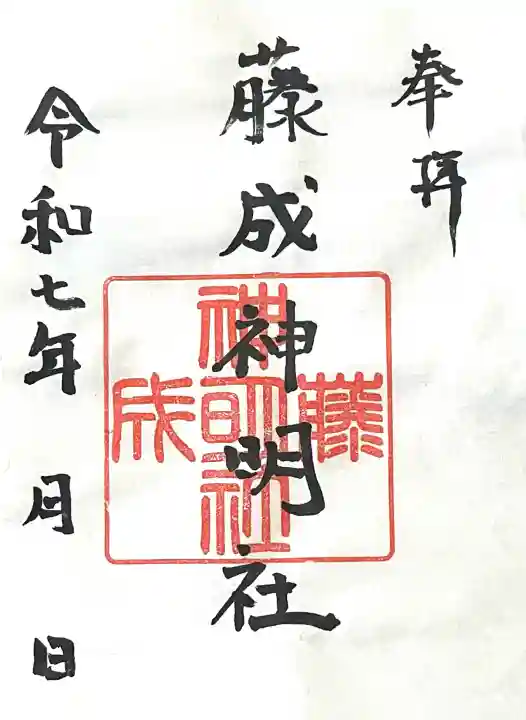 奉拝
藤成神明社
藤成
神明社
令和七年 月 日